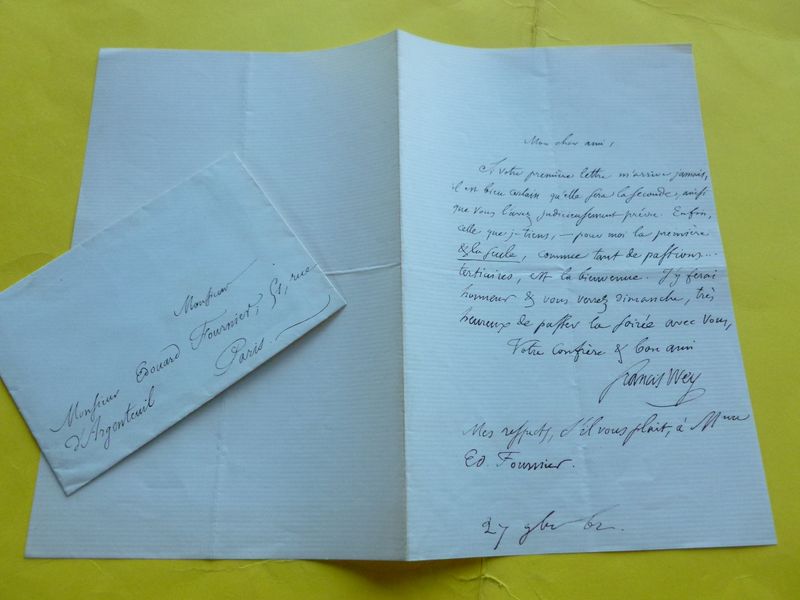 Monsieur
Monsieur Edouard Fournier, 51, rue
d'Argenteuil Paris.
Mon cher ami,
Si votre première lettre m'arrive jamais,
il est bien certain qu'elle sera la seconde, ainsi
que vous l'avez judicieusement prévu. Enfin,
celle que je tiens, — pour moi la première
& la seule, comme tant de passions...
tertiaires, est la bienvenue. J'y ferai
honneur & vous verrez dimanche, très
heureux de passer la soirée avec vous,
Votre confrère & bon ami
Francis Wey
Mes respects, s'il vous plait, à Mme
Ed. Fournier.
27 9bre 62.